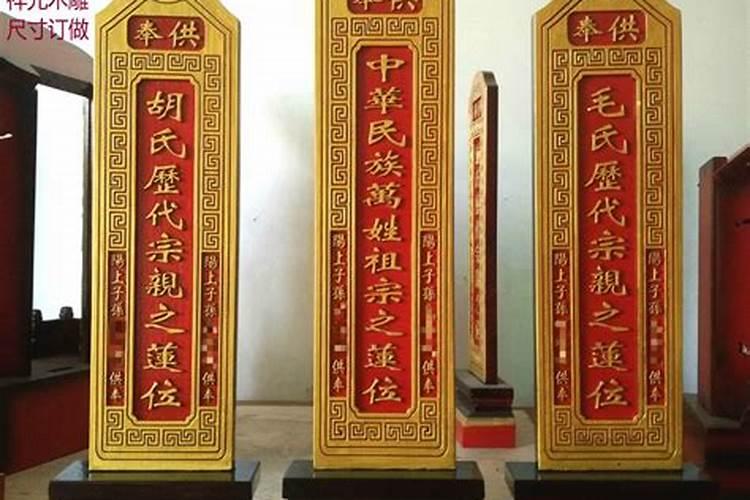 祥光木雕
尺寸订做
奉供
胡氏歷代宗親之蓮位
陽上子孫
供奉
陽上子孫
供奉
奉供
中華民族萬姓祖宗之蓮位
陽上子孫
供奉
陽上子孫
供奉
奉供
毛氏歷代宗親之蓮位
陽上子孫
供奉
陽上子孫
供奉